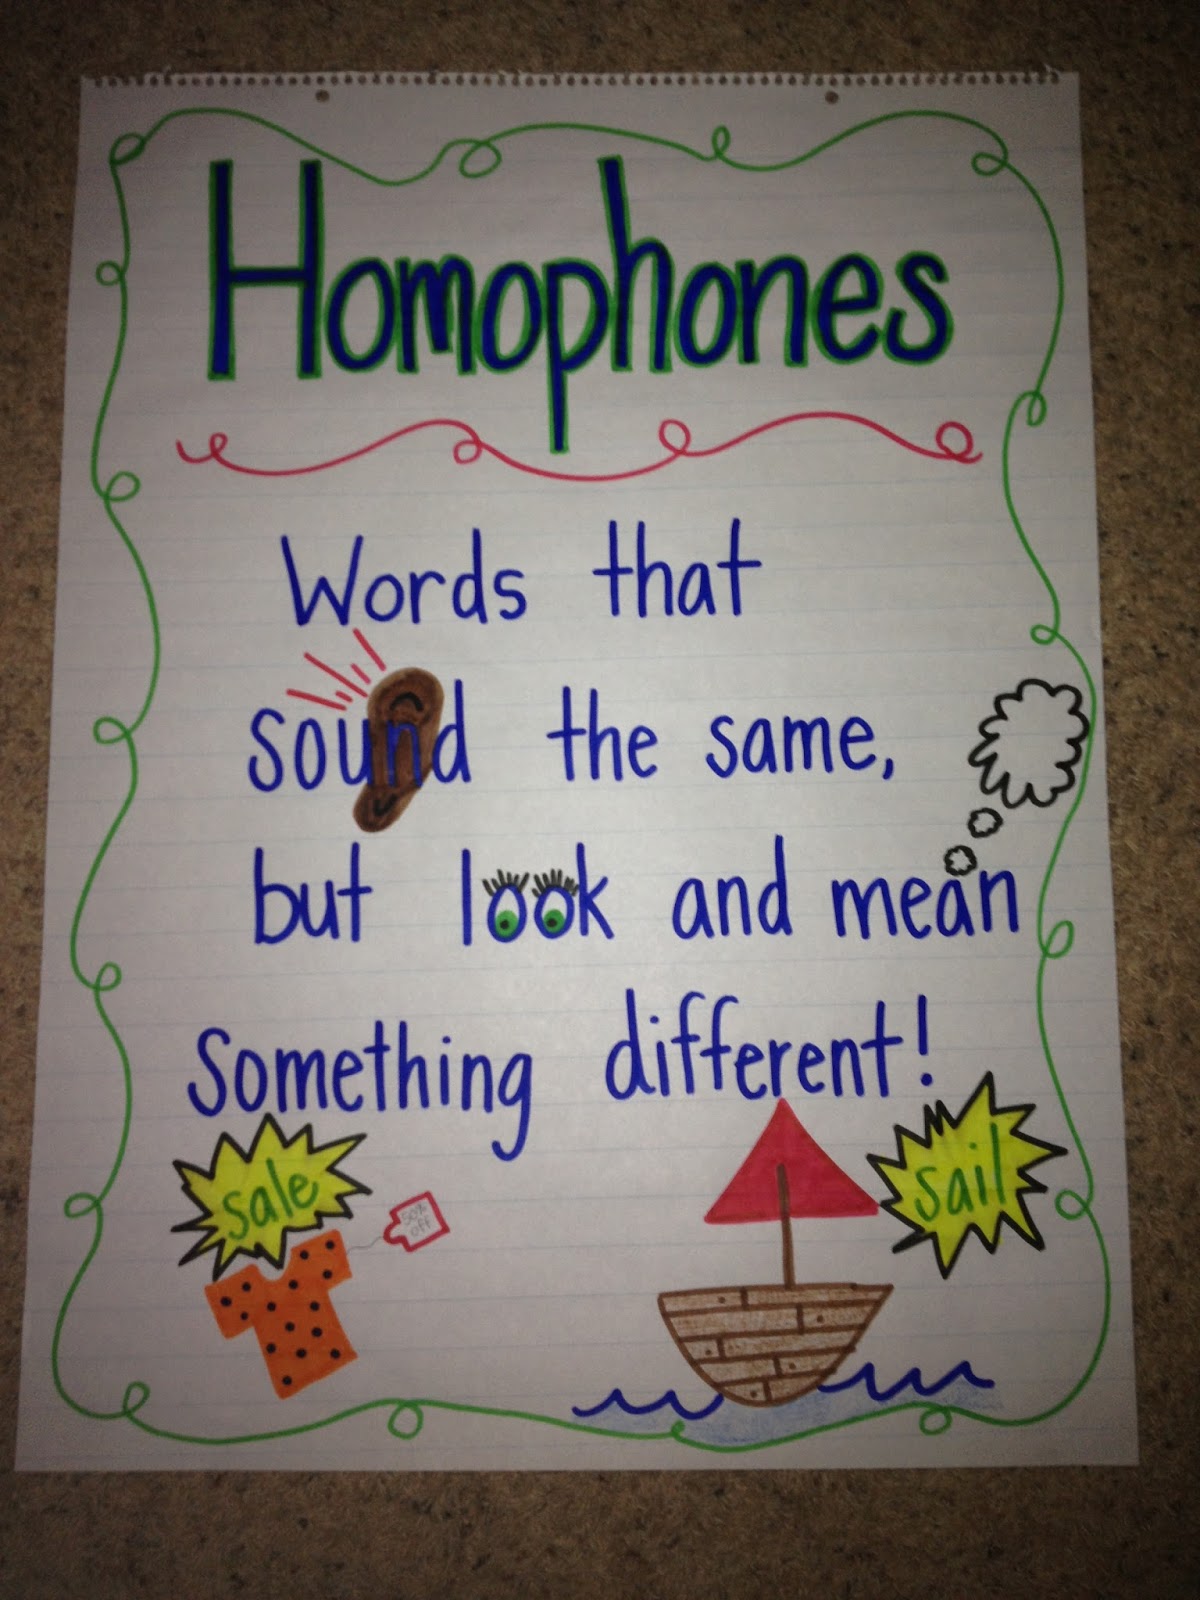 Homophones
Words that
sound the same,
but look and mean
something different!
sale
50%
off
sail